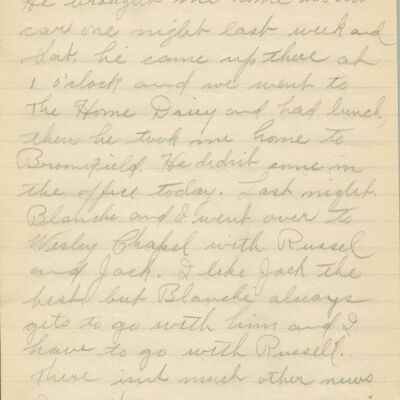 He brought me home in his
car one night last week and
Sat. he came up there at
1 o'clock and we went to
The Home Dairy and had lunch,
then he took me home to
Bromfield. He didn't come in
the office today. Last night.
Blanche and I went over to
Wesley Chapel with Russel
and Jack. I like Jack the
best but Blanche always
gits to go with him and I
have to go with Russell.
There isnt much other news